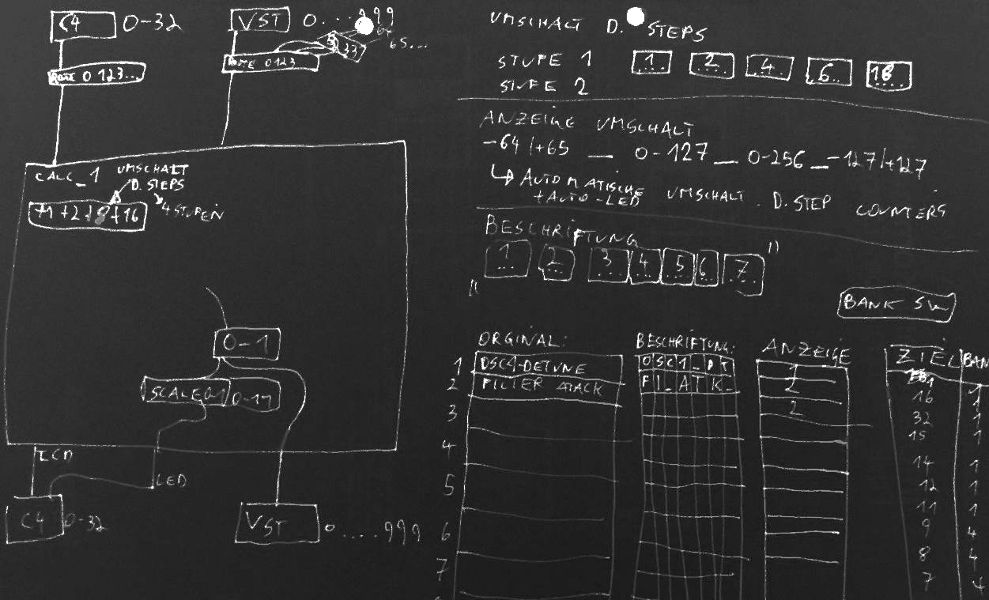 C4 0-32
VST 0...999
33
65...
0 1 2 3 ..
0 1 2 3
CALC_1 UMSCHALT
D. STEPS
4 STUFEN
+1 +2 +8 +16
0-1
SCALE 0-1 0-17
LCD
LED
C4 0-32
VST 0....999
UMSCHALT D. STEPS
STUFE 1 1... 2... 4... 6... 16...
STUFE 2
ANZEIGE UMSCHALT
-64/+65 _ 0-127 _ 0-256 _ -127/+127
↳ AUTOMATISCHE UMSCHALT. D. STEP COUNTERS
+AUTO-LED
BESCHRIFTUNG
" 1... 2... 3... 4... 5... 6.. 7... "
BANK SW
ORGINAL: BESCHRIFTUNG: ANZEIGE ZIEL BAN
1 OSC1-DETUNE OSC1_DT 1
2 FILTER ATACK FI_ATK_ 2 16 1
3 2 32 1
15 1
4 14 1
5 12 1
11 1
6 9 4
8 4
7 7 4